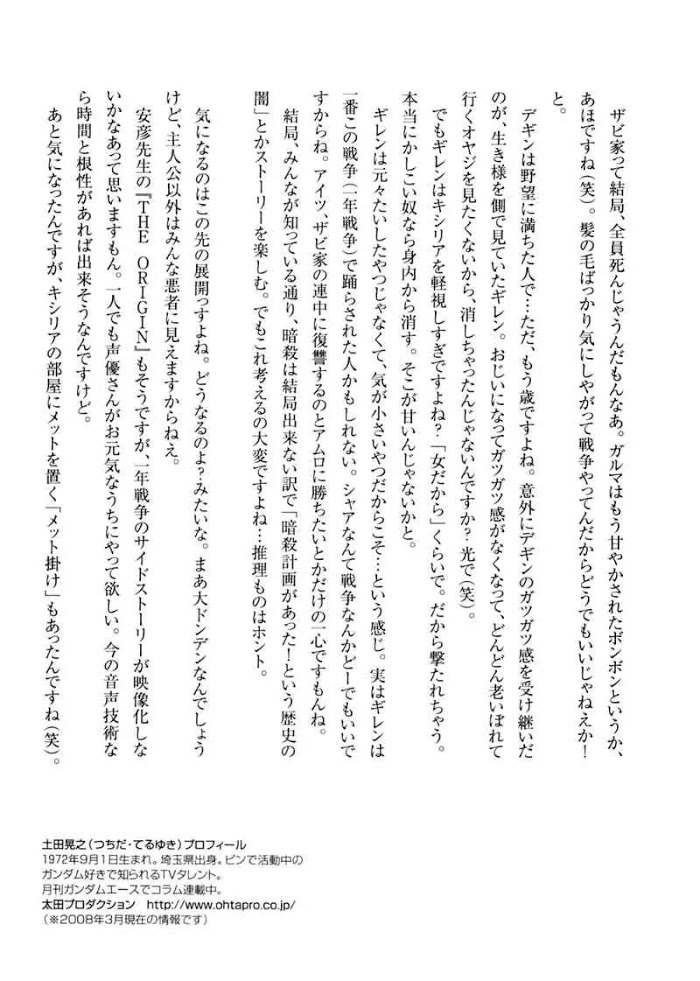 ザビ家って結局、全員死んじゃうんだもんなあ。ガルマはもう甘やかされたボンボンというか、
あほですね(笑)。髪の毛ばっかり気にしやがって戦争やってんだからどうでもいいじゃねえか!
と。
デギンは野望に満ちた人で…ただ、もう歳ですよね。意外にデギンのガツガツ感を受け継いだ
のが、生き様を側で見ていたギレン。おじいになってガツガツ感がなくなって、どんどん老いぼれて
行くオヤジを見たくないから、消しちゃったんじゃないんですか?光で(笑)。
でもギレンはキシリアを軽視しすぎですよね?「女だから」くらいで。だから撃たれちゃう。
本当にかしこい奴なら身内から消す。そこが甘いんじゃないかと。
ギレンは元々たいしたやつじゃなくて、気が小さいやつだからこそ…という感じ。実はギレンは
一番この戦争(一年戦争)で踊らされた人かもしれない。シャアなんて戦争なんかどーでもいいで
すからね。アイツ、ザビ家の連中に復讐するのとアムロに勝ちたいとかだけの一心ですもんね。
結局、みんなが知っている通り、暗殺は結局出来ない訳で「暗殺計画があった!という歴史の
闇」とかストーリーを楽しむ。でもこれ考えるの大変ですよね…推理ものはホント。
気になるのはこの先の展開っすよね。どうなるのよ?みたいな。まあ大ドンデンなんでしょう
けど、主人公以外はみんな悪者に見えますからねえ。
安彦先生の『THE ORIGIN』もそうですが、一年戦争のサイドストーリーが映像化しな
いかなあって思いますもん。一人でも声優さんがお元気なうちにやって欲しい。今の音声技術な
ら時間と根性があれば出来そうなんですけど。
あと気になったんですが、キシリアの部屋にメットを置く「メット掛け」もあったんですね(笑)。
土田晃之(つちだ・てるゆき)プロフィール
1972年9月1日生まれ。埼玉県出身。ピンで活動中の
ガンダム好きで知られるTVタレント。
月刊ガンダムエースでコラム連載中。
太田プロダクション http://www.ohtapro.co.jp/
(※2008年3月現在の情報です)